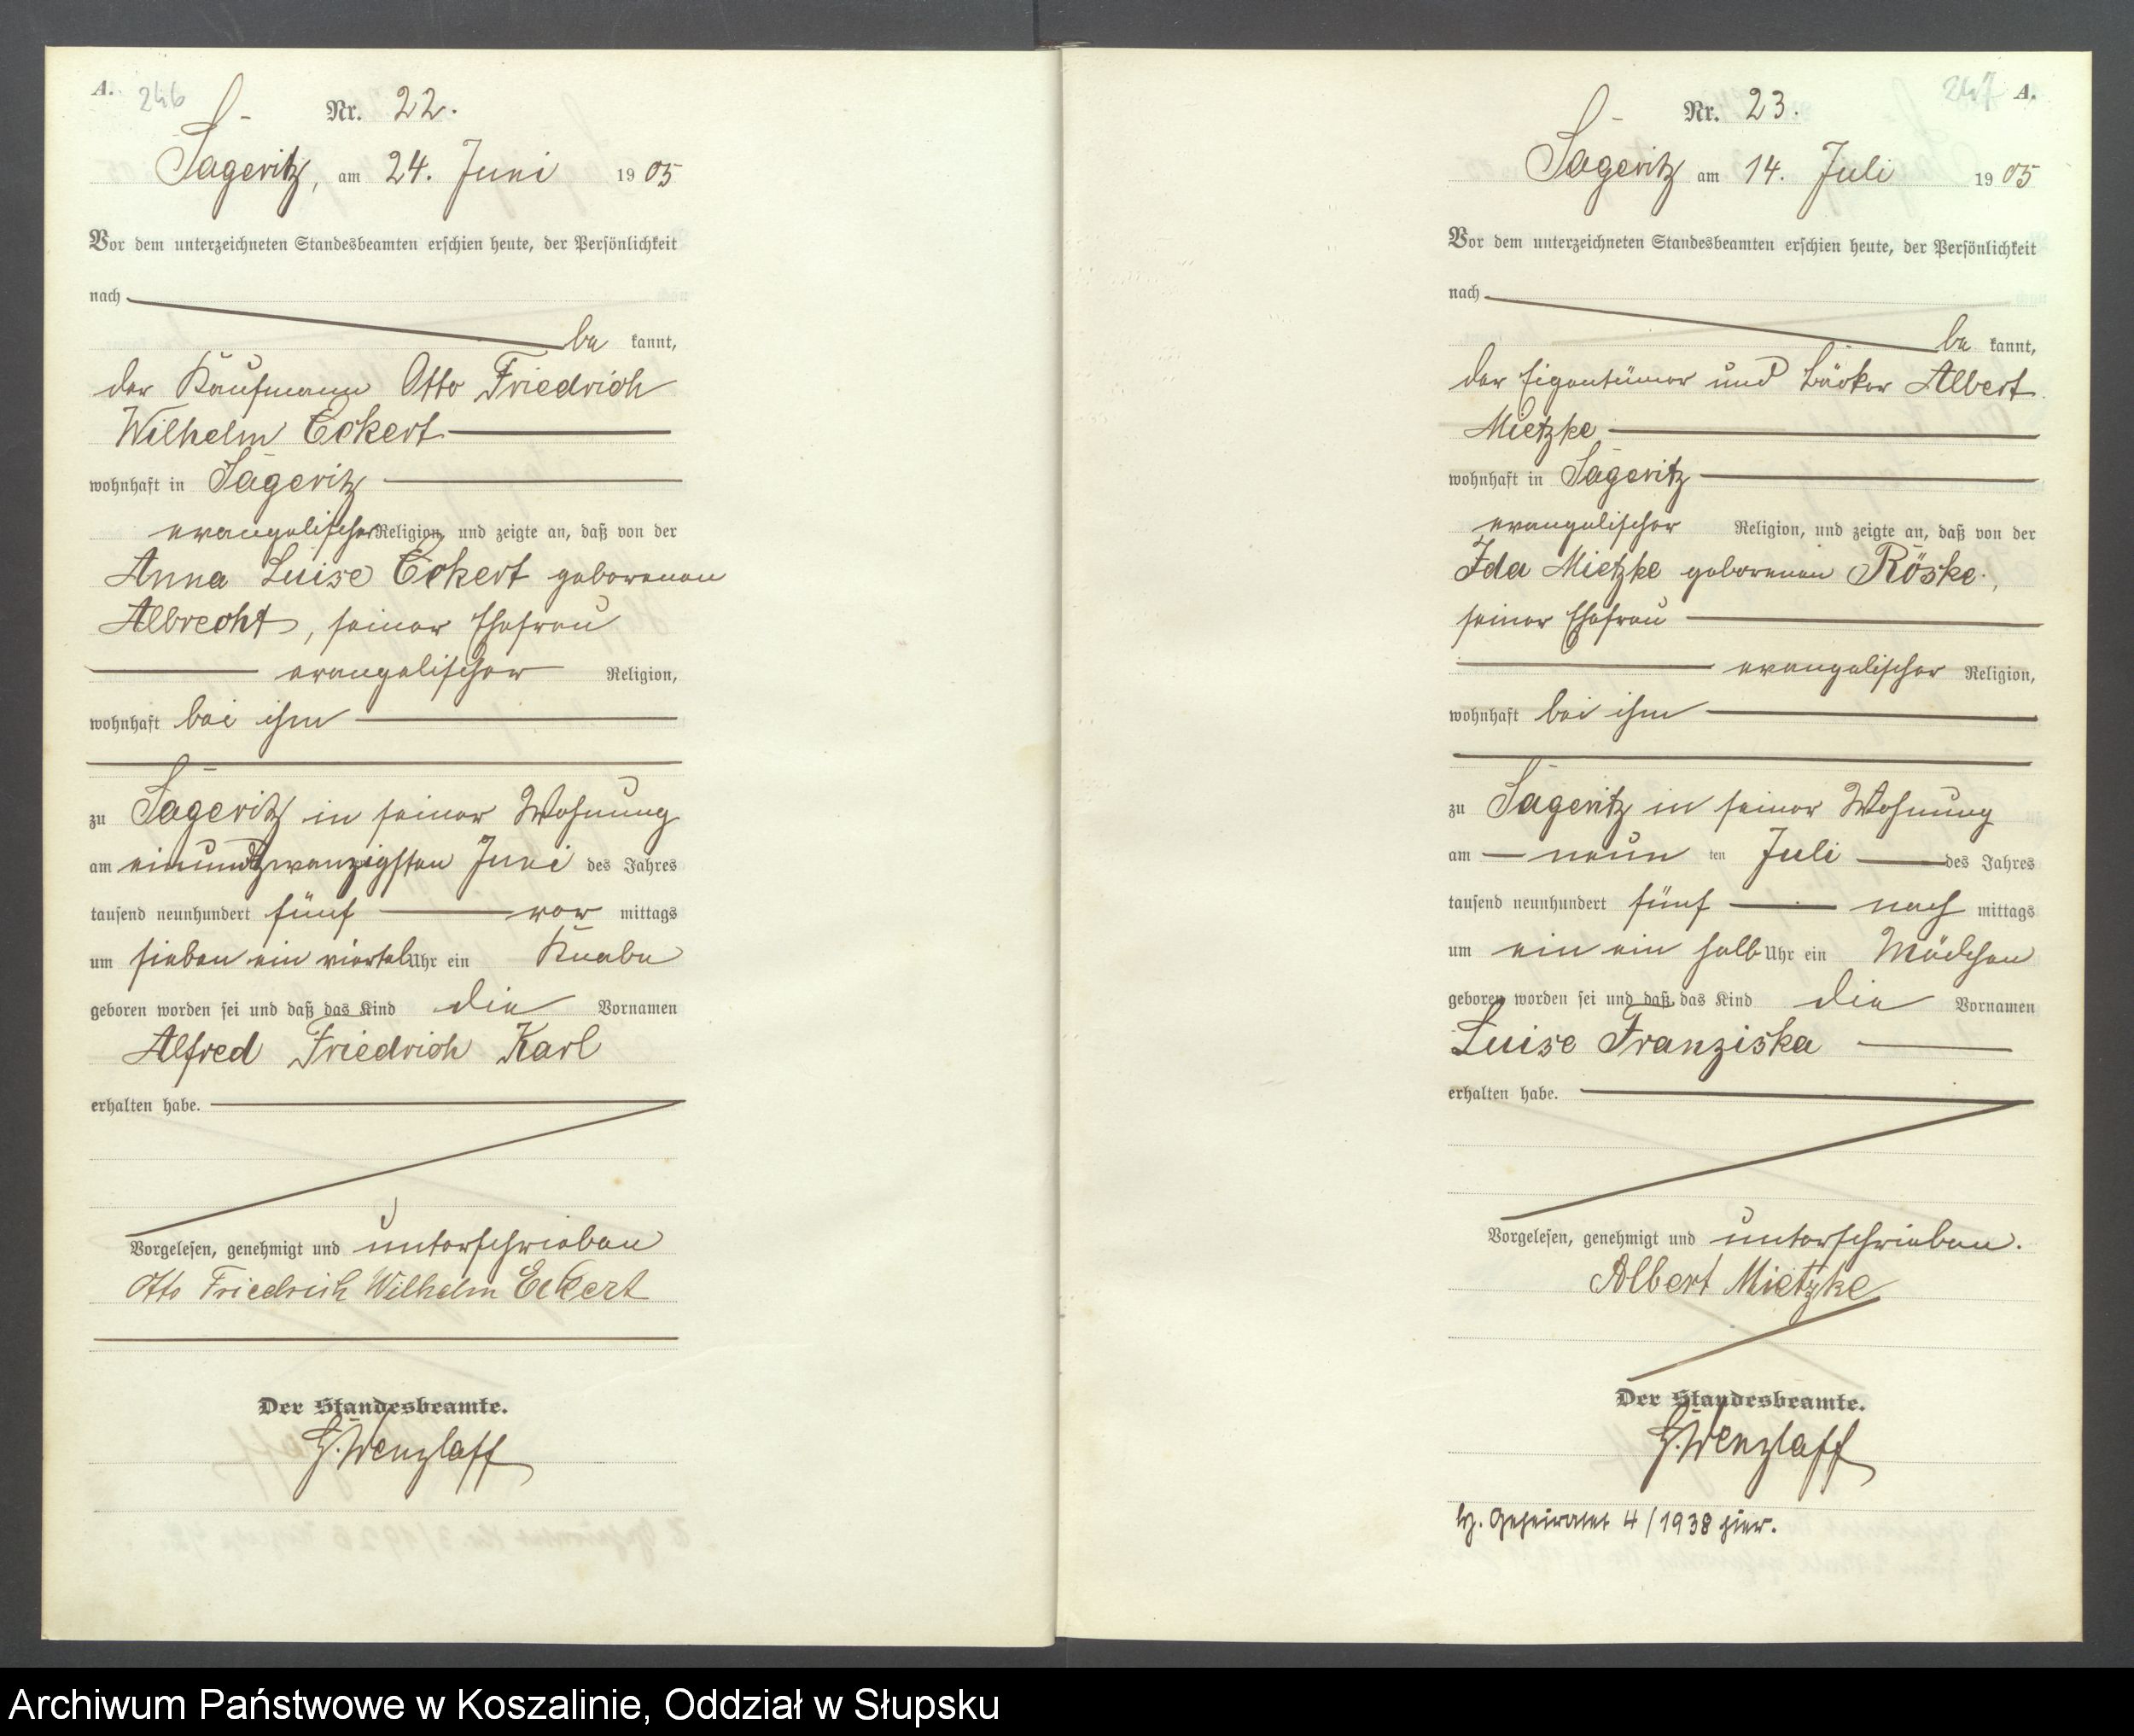 A.
246
Nr. 22.
Sageritz, am 24. Juni 1905
Vor dem unterzeichneten Standesbeamten erschien heute, der Persönlichkeit
nach
be kannt,
der Kaufmann Otto Friedrich
Wilhelm Eckert
wohnhaft in Sageritz
evangelischer Religion, und zeigte an, daß von der
Anna Luise Eckert geborenen
Albrecht, seiner Ehefrau
evangelischer Religion,
wohnhaft bei ihm
zu Sageritz in seiner Wohnung
am einundzwanzigsten Juni des Jahres
tausend neunhundert fünf vor mittags
um sieben ein viertel Uhr ein Knabe
geboren worden sei und daß das Kind die Vornamen
Alfred Friedrich Karl
erhalten habe.
Vorgelesen, genehmigt und unterschrieben
Otto Friedrich Wilhelm Eckert
Der Standesbeamte.
Wenzlaff
247 A.
Nr. 23.
Sageritz am 14. Juli 1905
Vor dem unterzeichneten Standesbeamten erschien heute, der Persönlichkeit
nach
be kannt,
der Eigentümer und Bäcker Albert
Mietzke
wohnhaft in Sageritz
evangelischer Religion, und zeigte an, daß von der
Ida Mietzke geborenen Röske,
seiner Ehefrau
evangelischer Religion,
wohnhaft bei ihm
zu Sageritz in seiner Wohnung
am neun ten Juli des Jahres
tausend neunhundert fünf nach mittags
um ein ein halb Uhr ein Mädchen
geboren worden sei und daß das Kind die Vornamen
Luise Franziska
erhalten habe.
Vorgelesen, genehmigt und unterschrieben.
Albert Mietzke
Der Standesbeamte.
Wenzlaff
Geheiratet 4/1938 hier.
Archiwum Państwowe w Koszalinie, Oddział w Słupsku